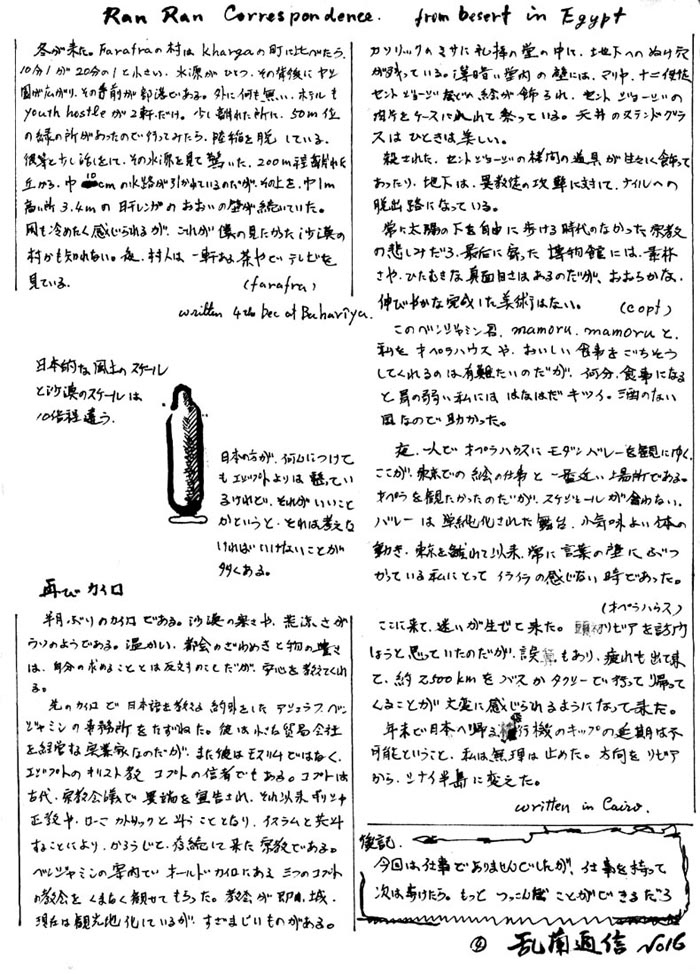 Ran Ran Correspondence. from desert in Egypt
冬が来た。Farafraの村は Khargaの町に比べたら、
10分の1か20分の1と小さい、水源がひとつ、その背後にヤシ
園が広がり、その手前が部落である。外に何も無い、ホテルも
youth hostleが2軒だけ。少し離れた所に、50m位
の緑の所があったので行ってみたら、
その水源を見て驚いた、200m程離れた
丘から、巾10cmの水路が引かれているのだが、その上を、巾1m
高い所3.4mの日干レンガのおおいの壁が続いていた。
風も冷めたく感じられるが、これが僕の見たかった沙漠の
村かも知れない。夜、村人は一軒ある茶やでテレビを
見ている。 (farafra)
written 4th Dec at Bahariya.
日本的な風土のスケール
と沙漠のスケールは
10倍程違う。
日本の方が、何んにつけて
もエジプトよりは整ってい
るけれど、それがいいこと
かというと、それは考えな
ければいけないことが
多くある。
再び カイロ
半月ぶりのカイロである。沙漠の寒さや、荒涼さが
うそのようである。温かい、都会のざわめきと物の豊さ
は、自分の求めることとは反対のことだが、安心を教えてくれ
る。
先のカイロで日本語を教える約束をした ベン
ジャミンの事務所をたずねた。彼は小さな貿易会社
を経営する実業家なのだが、また彼はモスリムではなく、
エジプトのキリスト教 コプトの信者でもある。コプトは
古代、宗教会議で異端を宣告され、それ以来ギリシャ
正教や、ローマカトリックと斗うこととなり、イスラムと共斗
することにより、かろうじて、存続して来た宗教である。
ベンジャミンの案内でオールドカイロにある三つのコプト
の教会をくまなく観せてもらった。教会が即ち、城、
現在は観光地化しているが、すざまじいものがある。
カソリックのミサに礼拝の堂の中に、地下へのぬけ穴
が残っている。薄暗い堂内の壁には、マリヤ、十二使徒
セントジョージなどの絵が飾られ、セントジョージの
肉片をケースに入れて祭っている。天井のステンドグラ
スはひときは美しい。
殺された、セントジョージの拷問の道具が生々しく飾って
あったり、地下は、異教徒の攻撃に対して、ナイルへの
脱出路になっている。
常に太陽の下を自由に歩ける時代のなかった宗教
の悲しみだろう。最后に寄った博物館には、素朴
さや、ひたむきな真面目さはあるのだが、おおらかな、
伸びやかな完成した美術はない。 (copt)
このベンジャミン君、mamoru. mamoruと、
私をオペラハウスや、おいしい食事をごちそう
してくれるのは有難たいのだが、何分、食事になる
と胃の弱い私には はなはだキツイ。酒のない
国なので助かった。
夜、一人でオペラハウスにモダンバレーを観にゆく、
ここが、東京での絵の仕事と一番近い場所である。
オペラを観たかったのだが、スケジュールが合わない、
バレーは単純化された舞台、小気味よい体の
動き、東京を離れて以来、常に言葉の壁に、ぶつ
かっている私にとってイライラの感じない時であった。
(オペラハウス)
ここに来て、迷いが生じて来た。 リビアを訪ず
ようと思っていたのだが、誤算もあり、疲れも出て来
て、約2500kmをバスかタクシーで行って帰って
くることが大変に感じられるようになって来た。
年末で日本へ帰る飛行機のキップの延期は不
可能ということ、私は無理は止めた。方向をリビア
から、シナイ半島に変えた。
written in Cairo.
後記.
今回は、仕事でありませんでしたが、仕事を持って
次はあけたら。もっと つっこんだことができるだろう
④ 乱蘭通信 No16